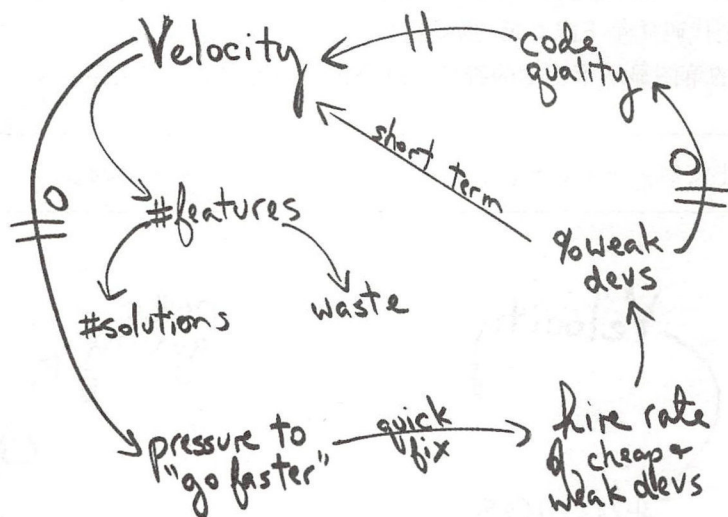 Velocity
code
quality
short term
O
O
#features
%weak
devs
#solutions
waste
pressure to
"go faster"
quick
fix
hire rate
of cheap &
weak devs